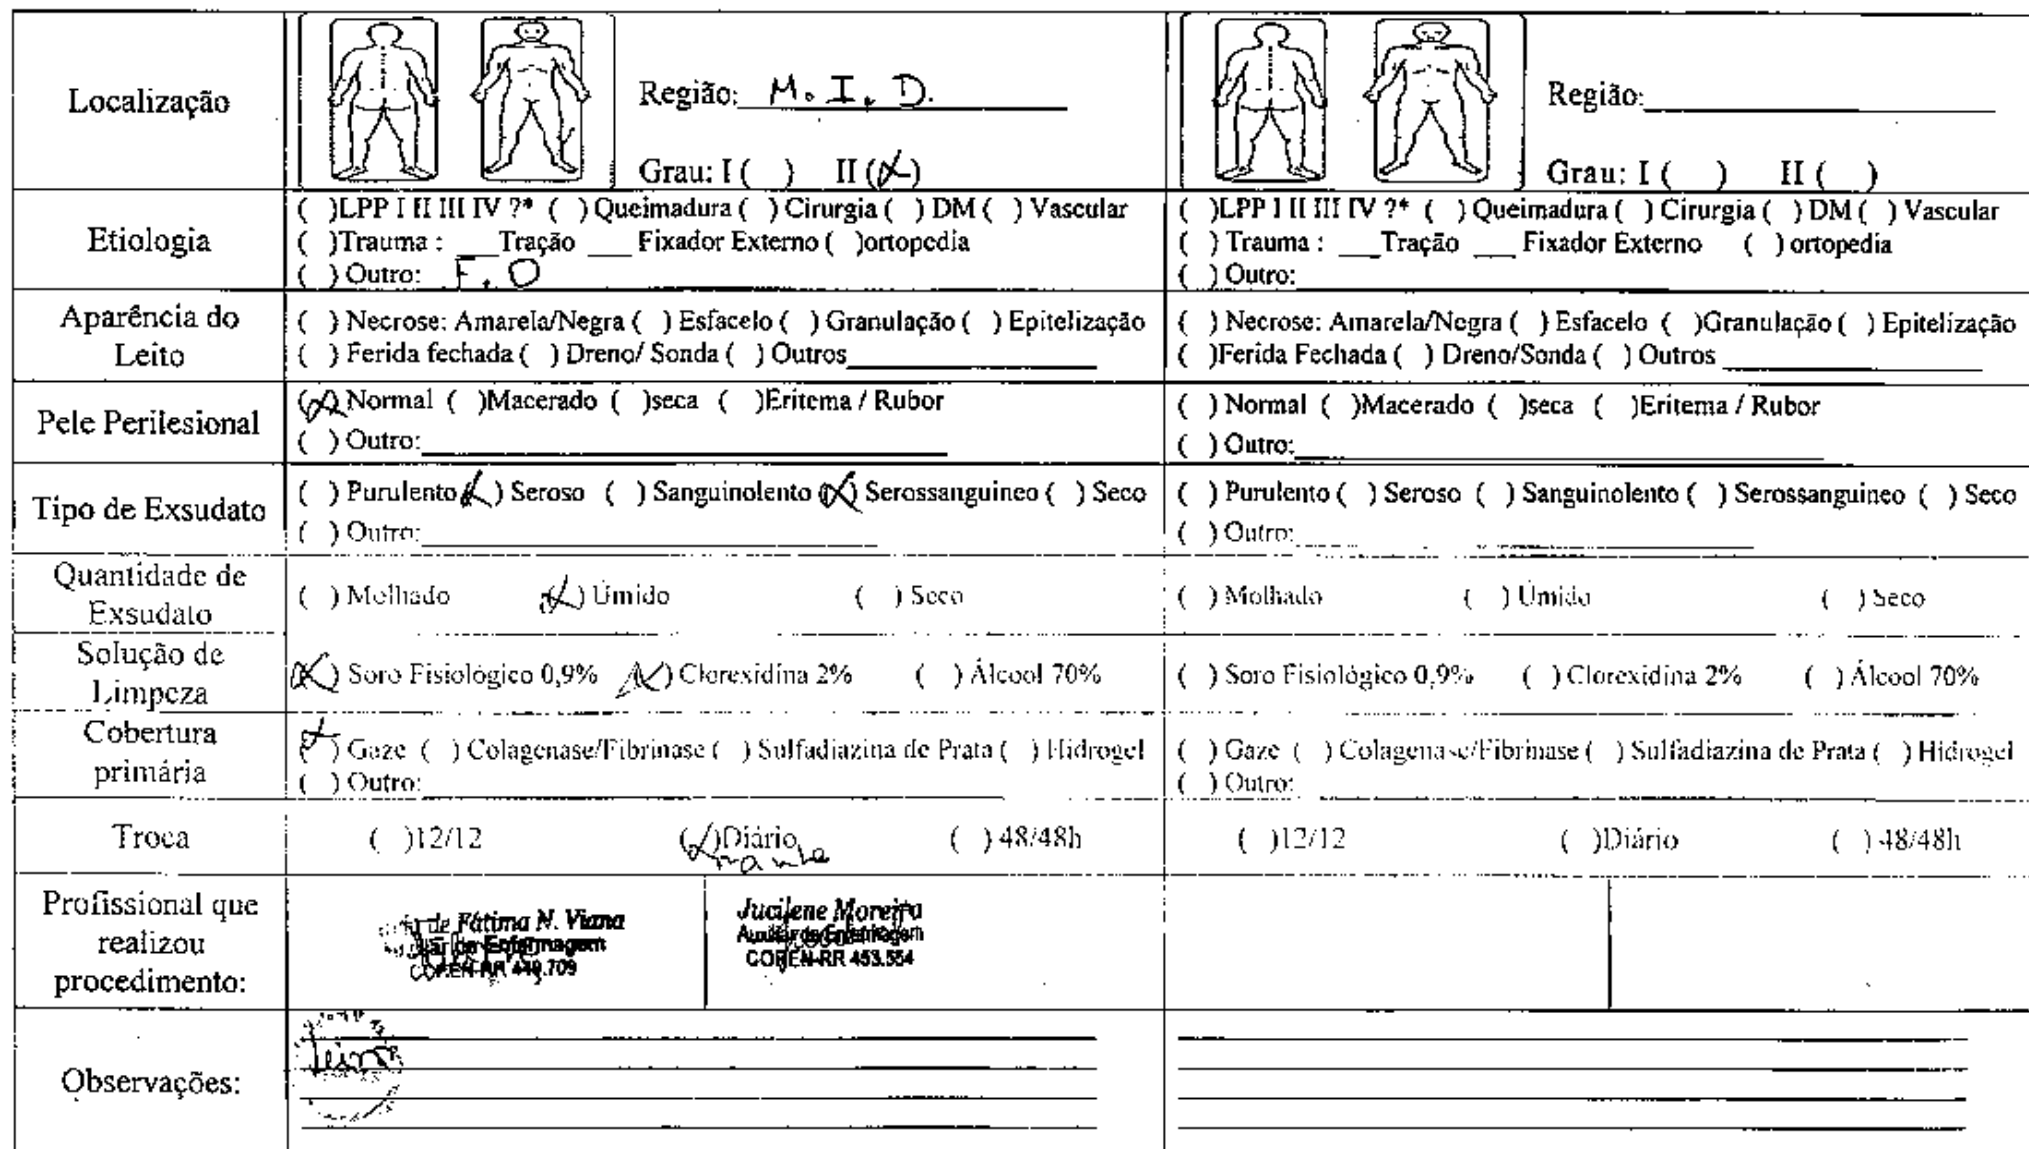 Localização
Região: M. I. D.
Grau: I ( ) II (X)
Região:
Grau: I ( ) II ( )
Etiologia
( )LPP I II III IV ?* ( ) Queimadura ( ) Cirurgia ( ) DM ( ) Vascular
( )Trauma : ___Tração ___ Fixador Externo ( )ortopedia
( ) Outro: F. O
( )LPP I II III IV ?* ( ) Queimadura ( ) Cirurgia ( ) DM ( ) Vascular
( ) Trauma : ___Tração ___ Fixador Externo ( ) ortopedia
( ) Outro:
Aparência do
Leito
( ) Necrose: Amarela/Negra ( ) Esfacelo ( ) Granulação ( ) Epitelização
( ) Ferida fechada ( ) Dreno/ Sonda ( ) Outros
( ) Necrose: Amarela/Negra ( ) Esfacelo ( )Granulação ( ) Epitelização
( )Ferida Fechada ( ) Dreno/Sonda ( ) Outros
Pele Perilesional
(X) Normal ( )Macerado ( )seca ( )Eritema / Rubor
( ) Outro:
( ) Normal ( )Macerado ( )seca ( )Eritema / Rubor
( ) Outro:
Tipo de Exsudato
( ) Purulento (X) Seroso ( ) Sanguinolento (X) Serossanguineo ( ) Seco
( ) Outro:
( ) Purulento ( ) Seroso ( ) Sanguinolento ( ) Serossanguineo ( ) Seco
( ) Outro:
Quantidade de
Exsudato
( ) Molhado (X) Úmido ( ) Seco
( ) Molhado ( ) Úmido ( ) Seco
Solução de
Limpeza
(X) Soro Fisiológico 0,9% (X) Clorexidina 2% ( ) Álcool 70%
( ) Soro Fisiológico 0,9% ( ) Clorexidina 2% ( ) Álcool 70%
Cobertura
primária
(X) Gaze ( ) Colagenase/Fibrinase ( ) Sulfadiazina de Prata ( ) Hidrogel
( ) Outro:
( ) Gaze ( ) Colagenase/Fibrinase ( ) Sulfadiazina de Prata ( ) Hidrogel
( ) Outro:
Troca
( )12/12 (X)Diário ( ) 48/48h
( )12/12 ( )Diário ( ) 48/48h
Profissional que
realizou
procedimento:
de Fátima N. Viana
de Enfermagem
COREN-RR 449.709
Jucilene Moreira
Auxiliar de Enfermagem
COREN-RR 453.554
Observações: